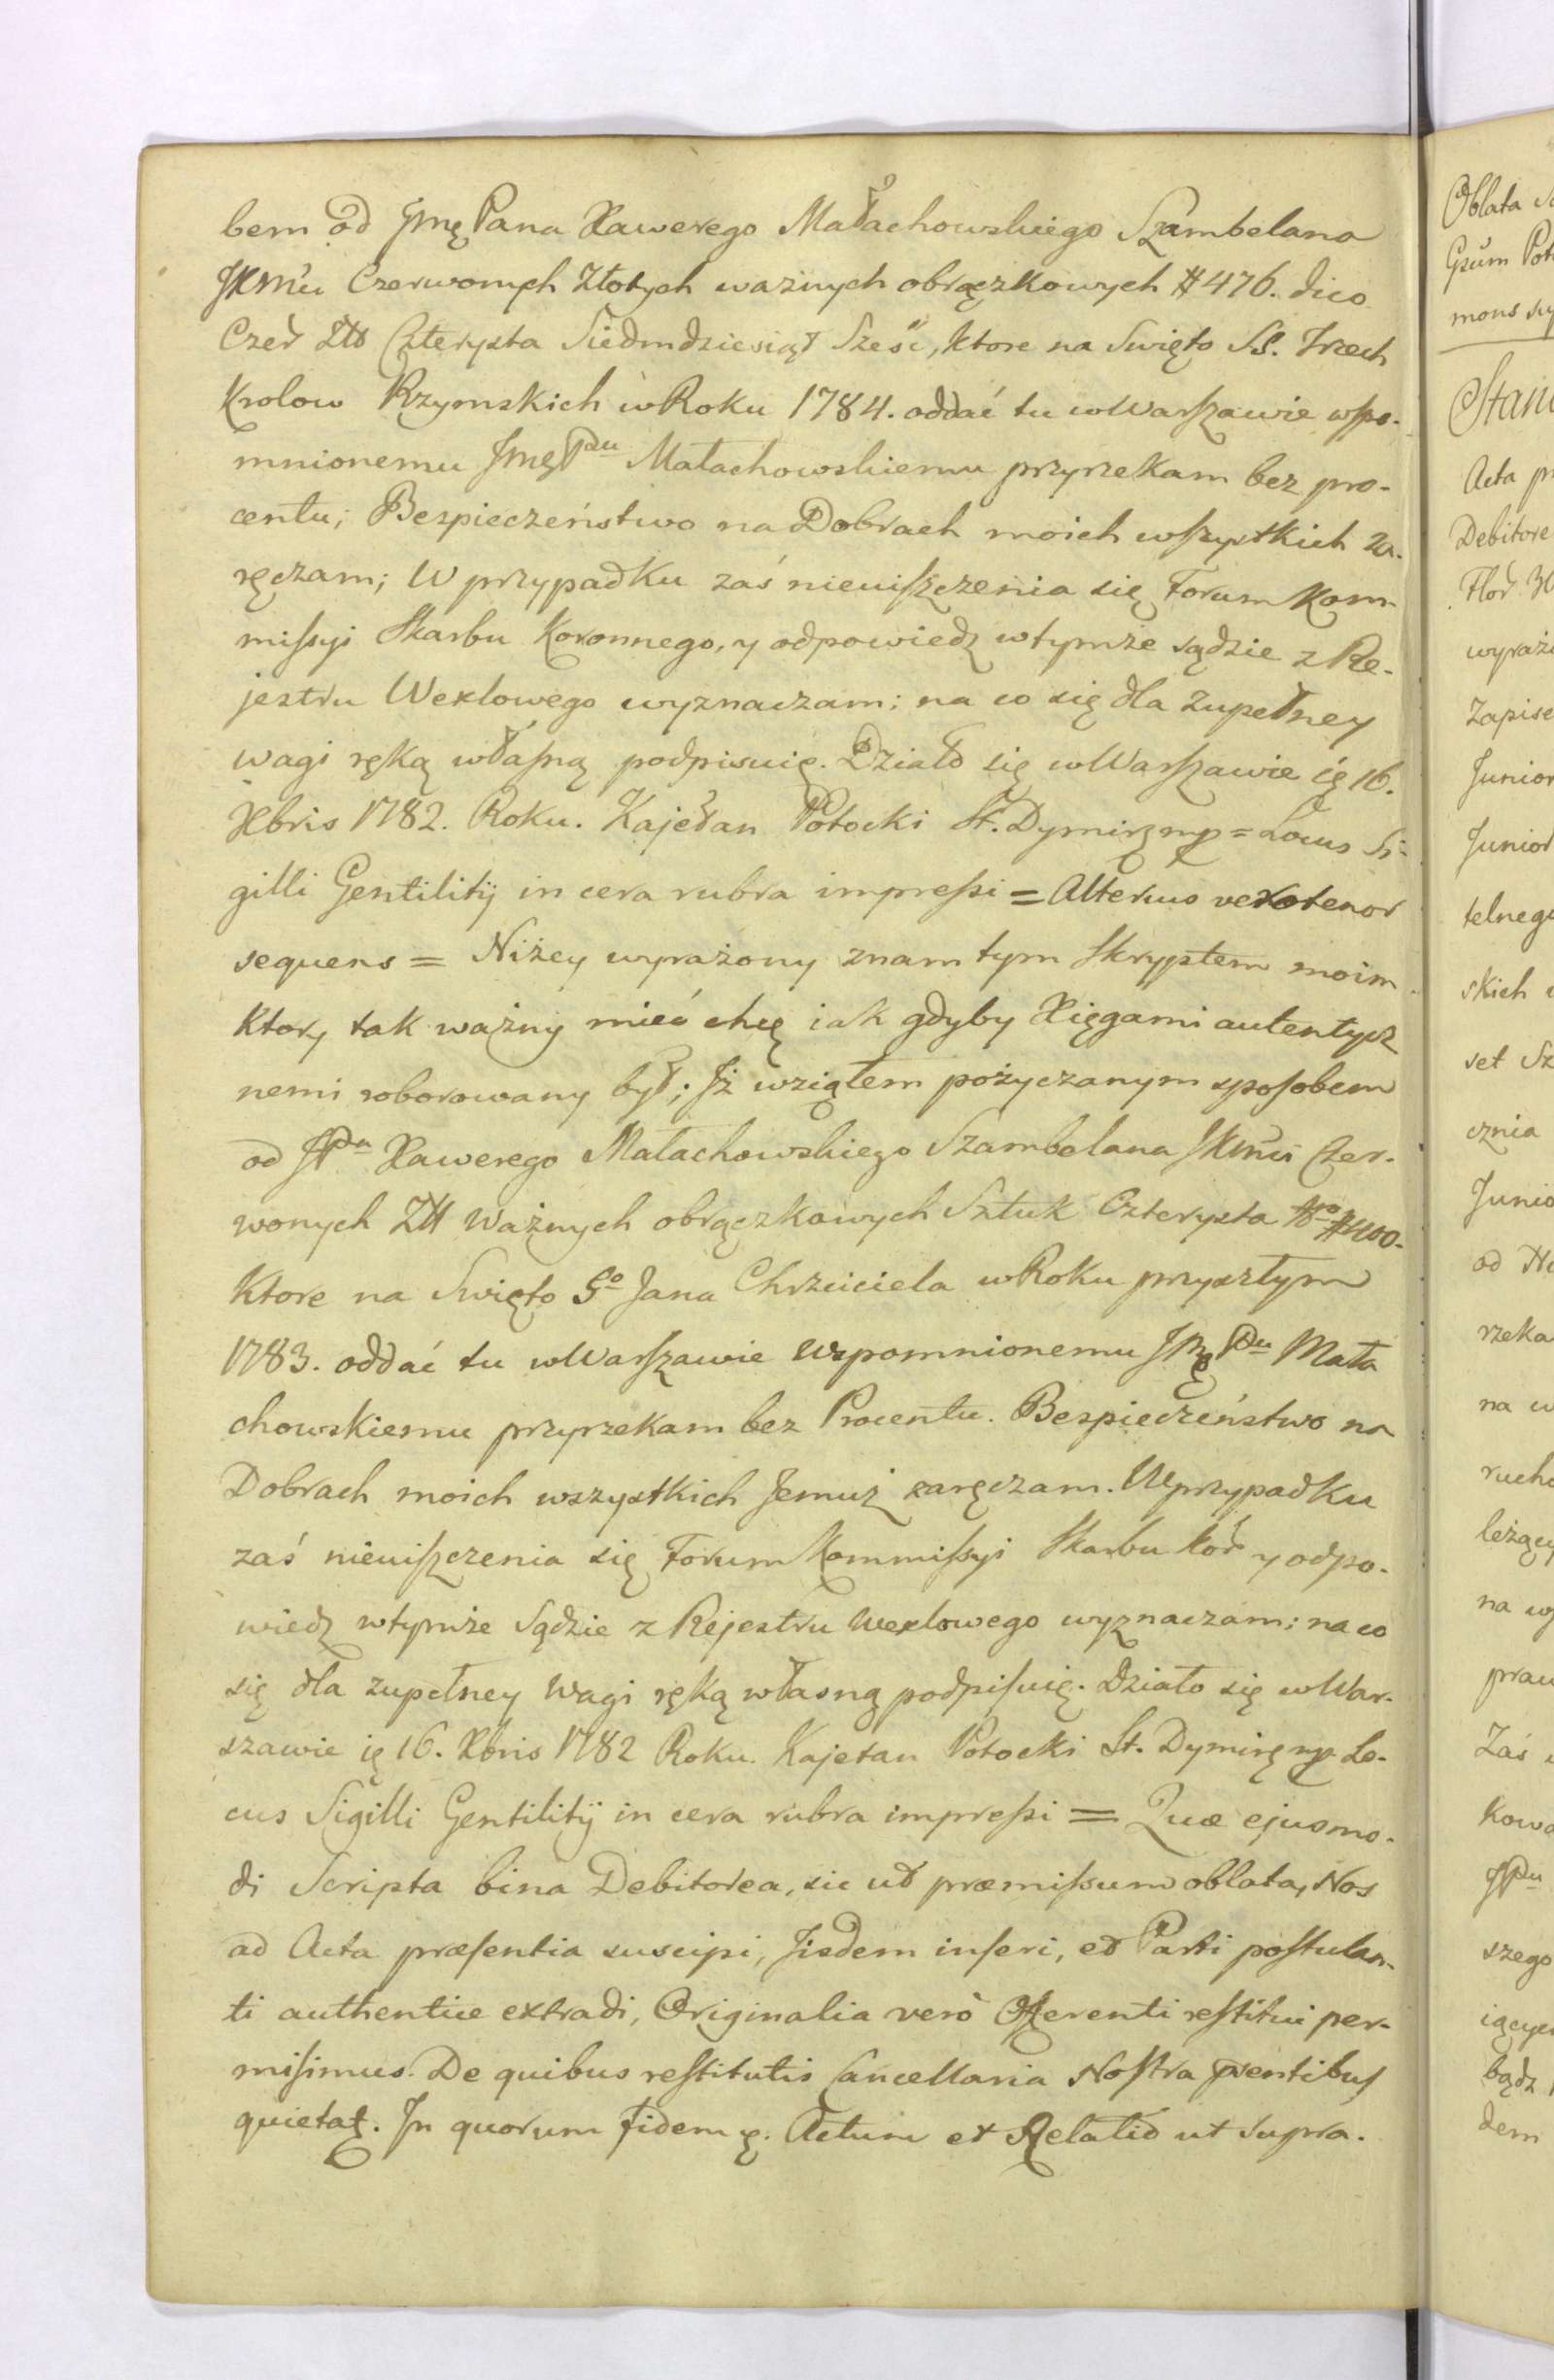 bem od Jmę Pana Xawerego Małachowskiego Szambelana
JKMći Czerwonych Złotych ważnych obrączkowych # 476. dico
Czer Złł Czterysta Siedmdziesiąt Sześć, ktore na Swięto SS. Trzech
Krolow Rzymskich w Roku 1784. oddać tu w Warszawie wspo-
mnionemu JmęPnu Małachowskiemu przyrzekam bez pro-
centu; Bezpieczeństwo na Dobrach moich wszystkich za-
ręczam; W przypadku zaś nieuiszczenia się Forum Kom-
missyi Skarbu Koronnego, y odpowiedz w tymże sądzie z Re-
jestru Wexlowego wyznaczam; na co się dla zupełney
wagi ręką własną podpisuię. Działo się w Warszawie ię 16.
Xbris 1782. Roku. Kajetan Potocki St. Dymirz mp = Locus Si-
gilli Gentilitij in cera rubra impressi = Alterius vero tenor
sequens = Niżey wyrażony znam tym Skryptem moim
ktory tak ważny mieć chcę iak gdyby Xięgami autentycz
nemi roborowany był; Jż wziąłem pożyczanym sposobem
od JPna Xawerego Małachowskiego Szambelana JKMći Czer-
wonych Złł Ważnych obrączkowych Sztuk Czterysta No # 400.
Ktore na Swięto Sgo Jana Chrzciciela w Roku przyszłym
1783. oddać tu w Warszawie Wspomnionemu JPę Pnu Mała
chowskiemu przyrzekam bez Procentu. Bezpieczeństwo na
Dobrach moich wszystkich Jemuż zaręczam. W przypadku
zaś nieuiszczenia się Forum Kommissyi Skarbu Kor y odpo-
wiedz w tymże Sądzie z Rejestru Wexlowego wyznaczam; na co
się dla zupełney Wagi ręką własną podpisuię. Działo się w War-
szawie ię 16. Xbris 1782 Roku. Kajetan Potocki St. Dymirz mp Lo-
cus Sigilli Gentilitij in cera rubra impressi = Quæ ejusmo-
di Scripta bina Debitorea, sic ut præmissum oblata, Nos
ad Acta præsentia suscipi, Jisdem inseri, et Parti postulan-
ti authentice extradi, Originalia verò Offerenti restitui per-
misimus. De quibus restitutis Cancellaria Nostra pntibus
quietat. In quorum fidem ę. Actum et Relatio ut supra.
Oblata
Gsum Pot
mons
Stani
Acta pr
Debitore
Flor 30
wyraż
Zapise
Junior
Junior
telnego
skich
set Sz
cznia
Junio
od
rzeka
na w
rucho
leżący
na wy
praw
Zaś
kowa
JPnu
szego
iącym
bądz
dem